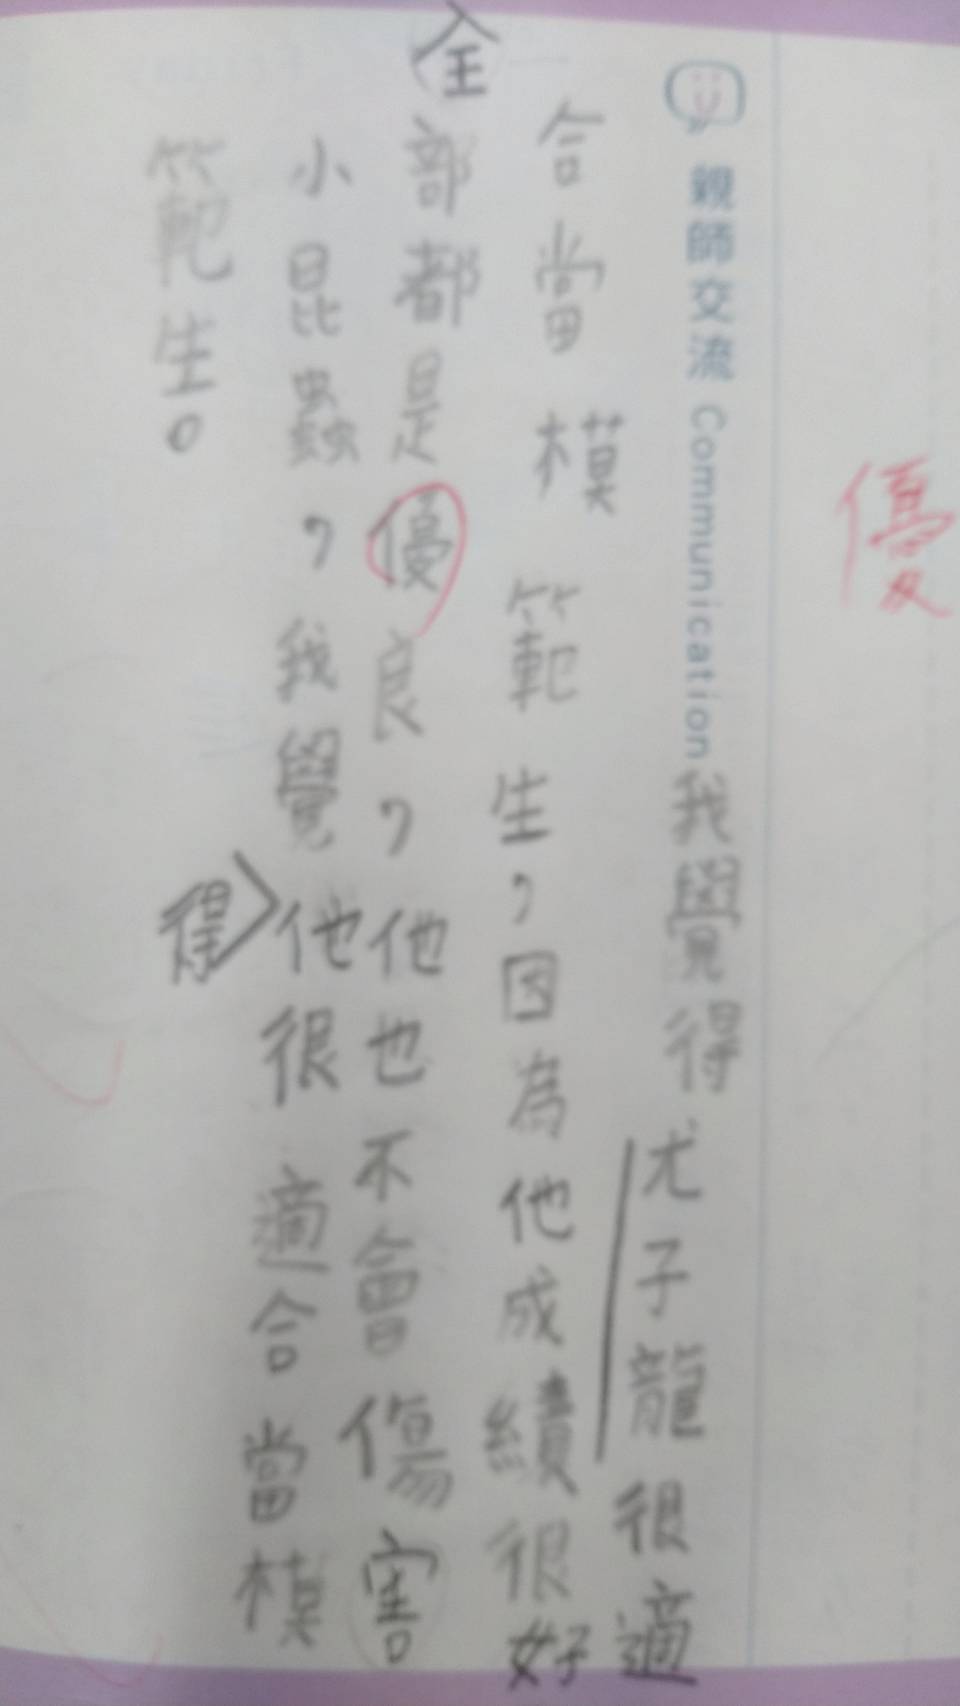 優
親師交流 Communication 我覺得尤子龍很適
合當模範生，因為他成績很好
全部都是優良，他也不會傷害
小昆蟲，我覺得他很適合當模
範生。